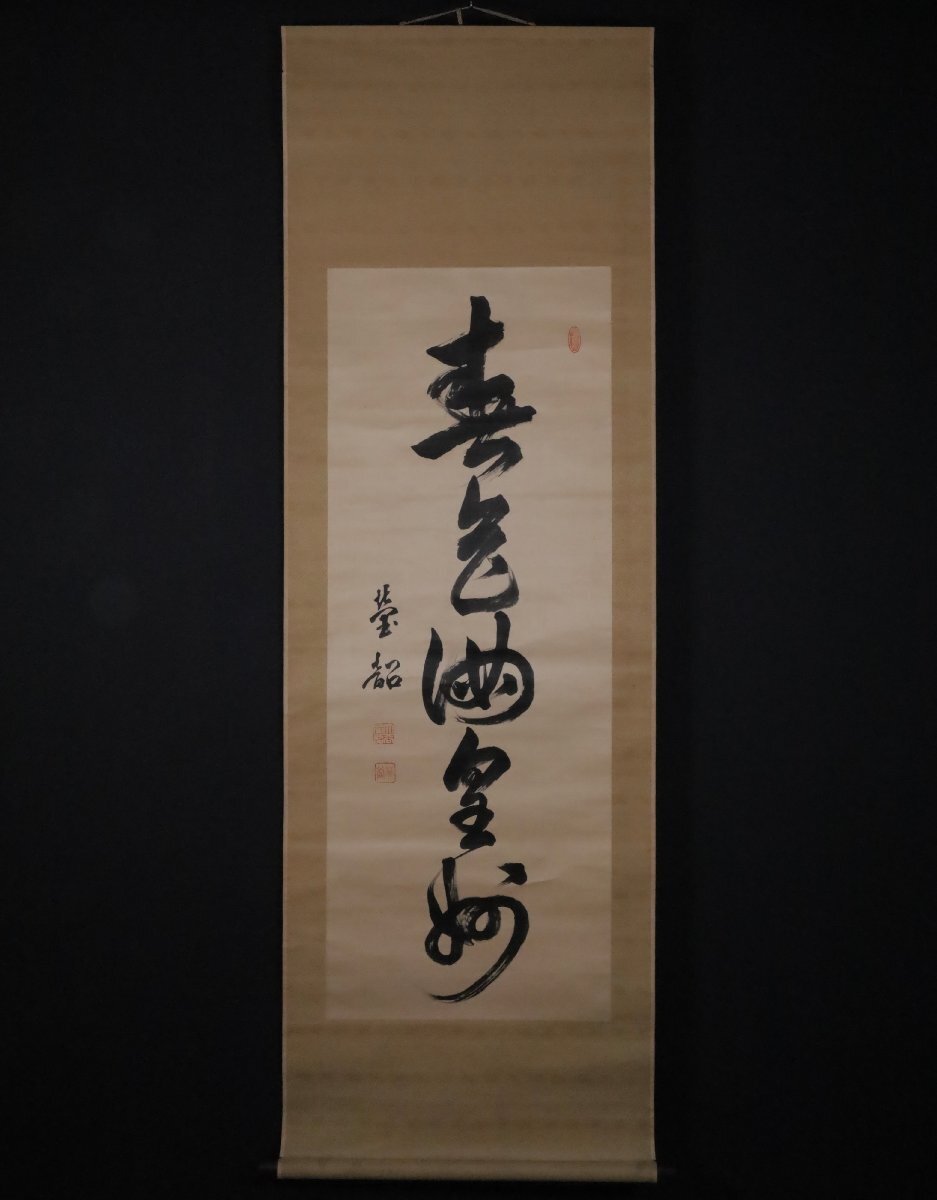 春色満皇州
瑩韶